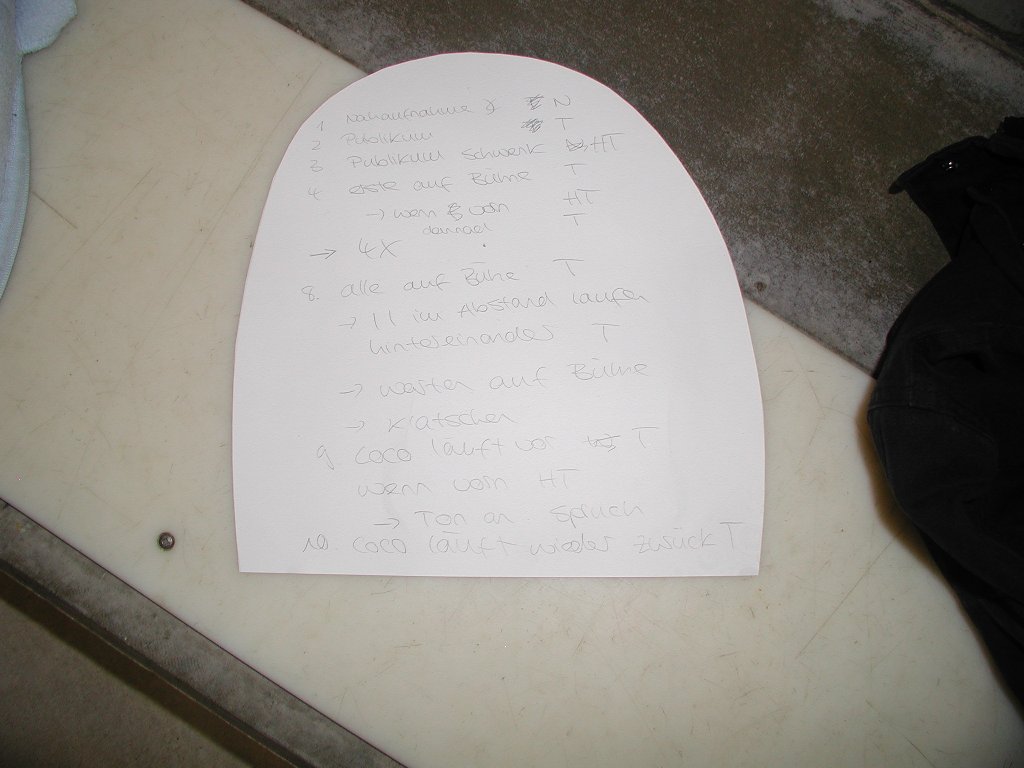 1 Nahaufnahme N
2 Publikum T
3 Publikum Schwenk HT
4. erste auf Bühne T
→ wenn vorn HT
danach T
→ 4x
8. alle auf Bühne T
→ 11 im Abstand laufen
hintereinander T
→ warten auf Bühne
→ klatschen
9. Coco läuft vor T
wenn vorn HT
→ Ton an Spruch
10. Coco läuft wieder zurück T